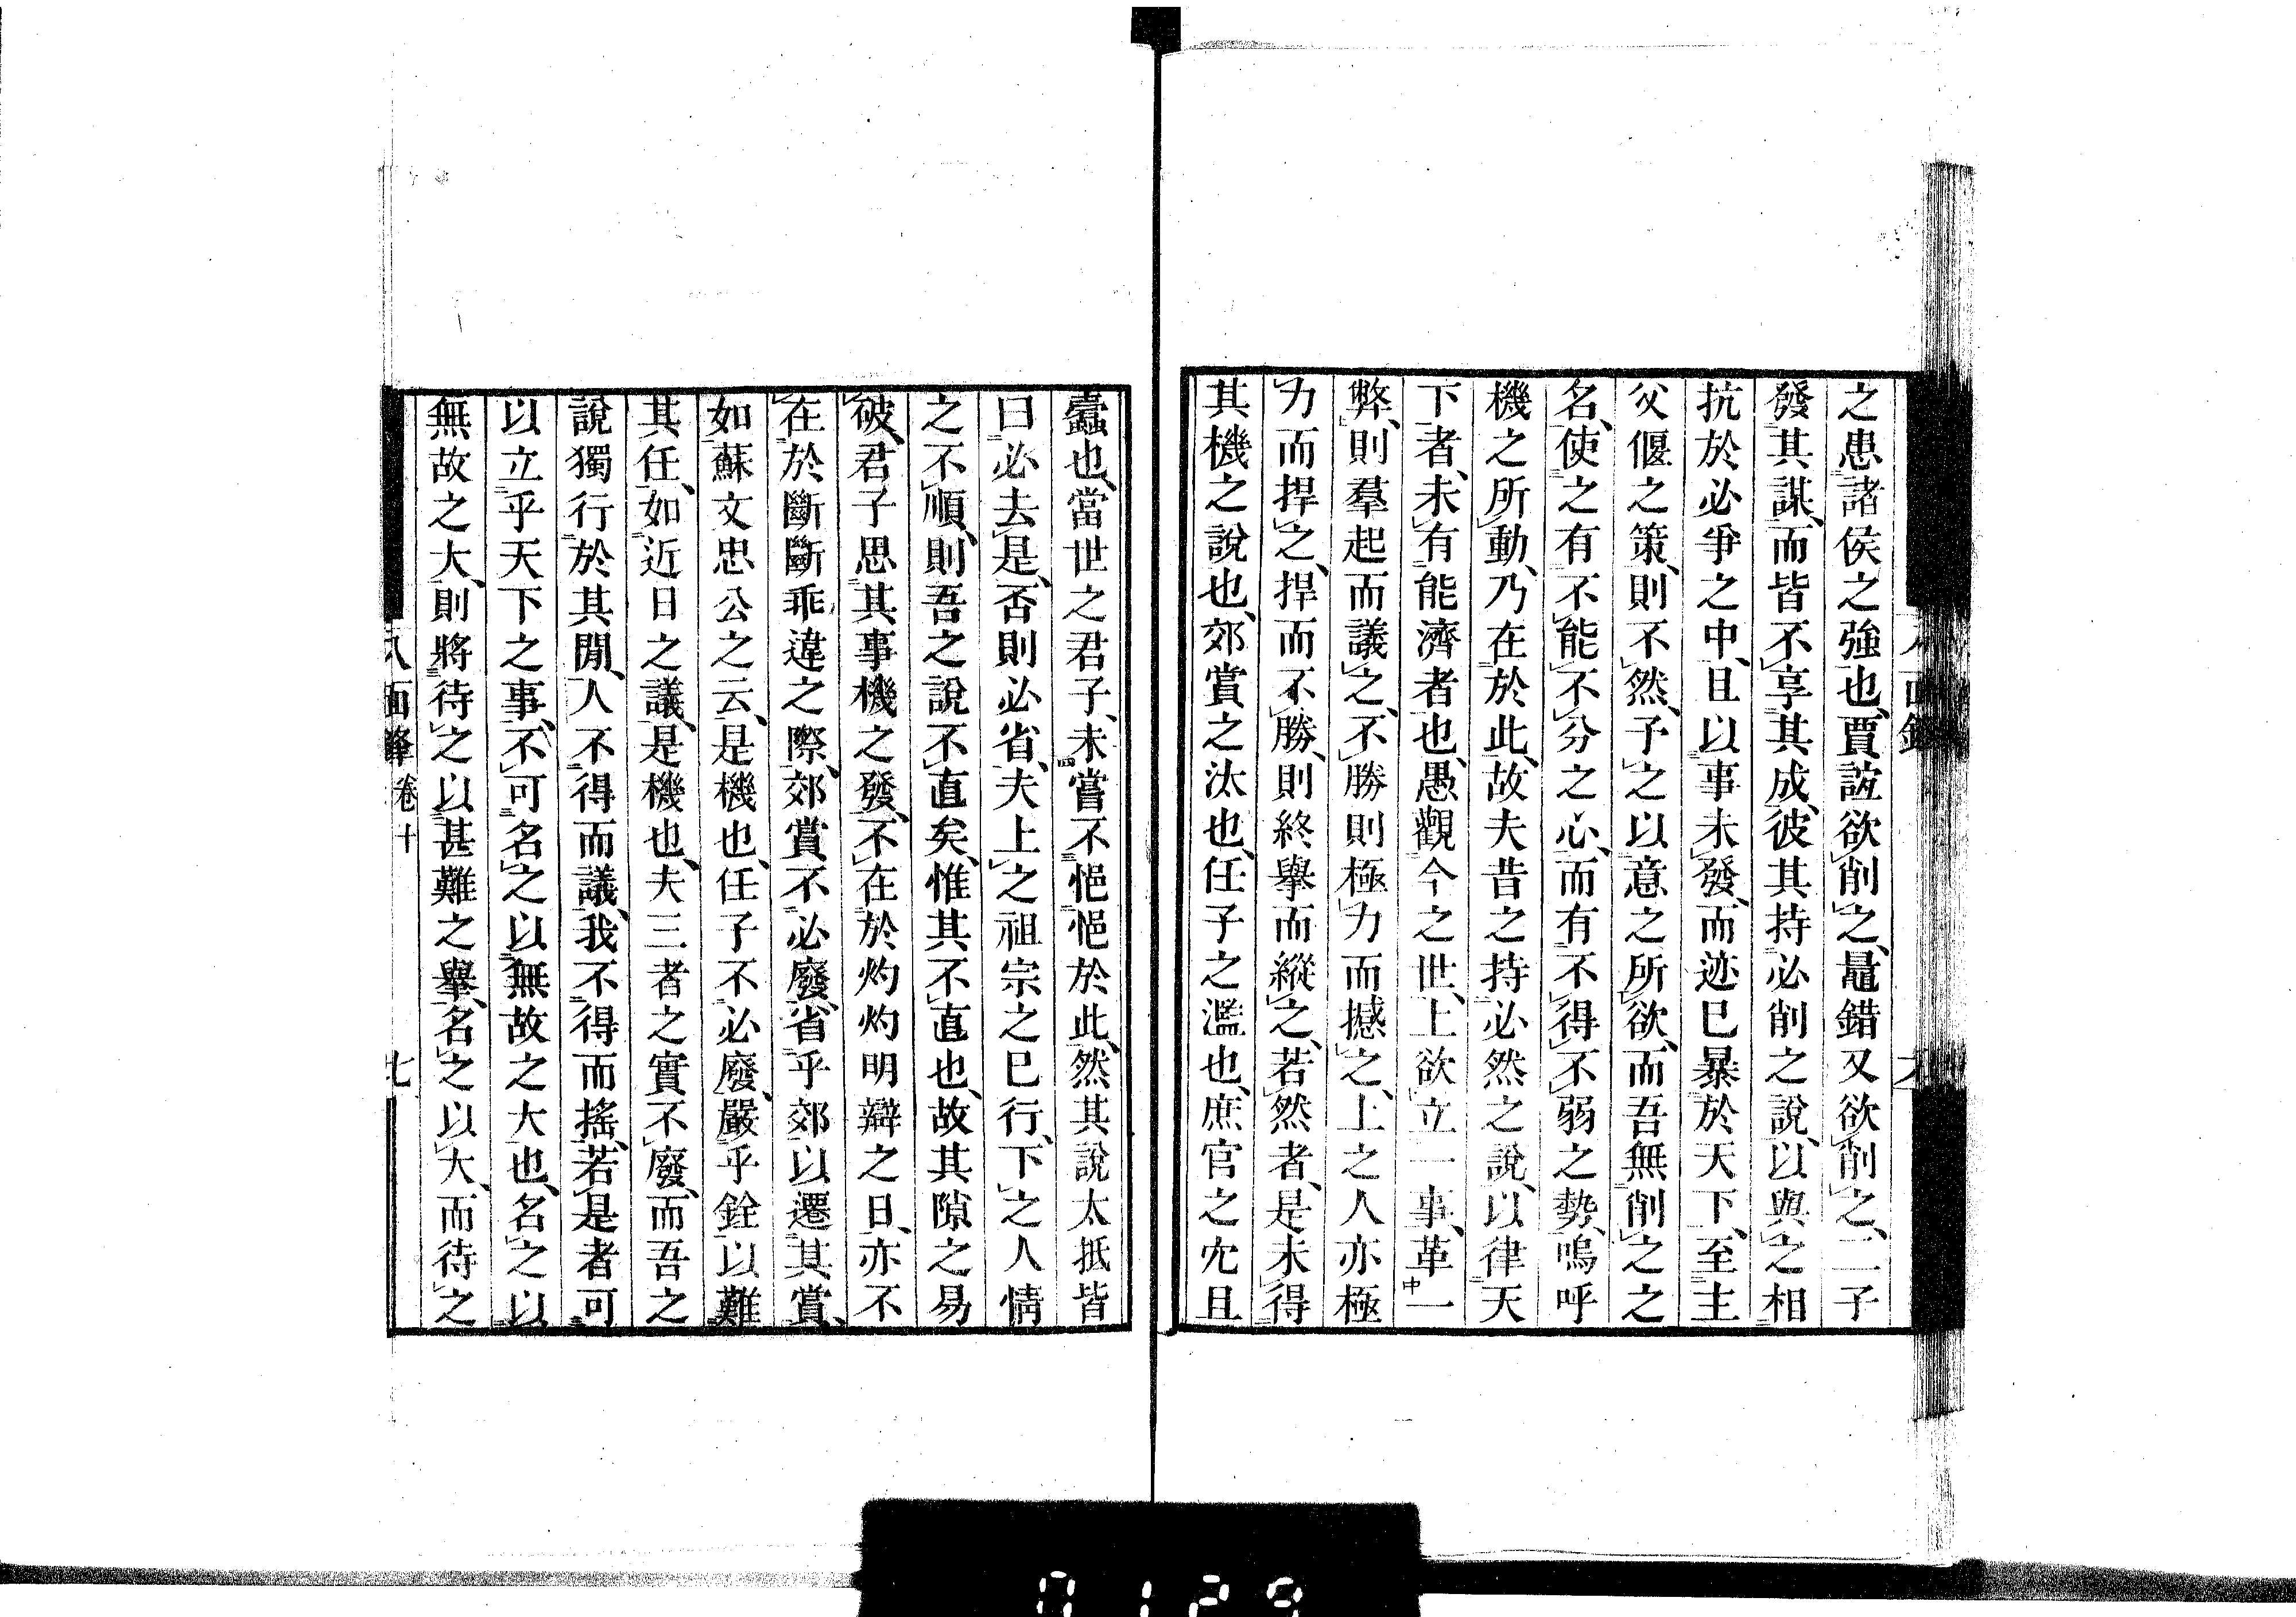 之患諸侯之強也、賈誼欲削之、鼂錯又欲削之、二子
發其謀、而皆不享其成、彼其持必削之說、以與之相
抗於必爭之中、且以事未發、而迹已暴於天下、至主
父偃之策、則不然、予之以意之所欲、而吾無削之之
名、使之有不能不分之心、而有不得不弱之勢、嗚呼
機之所動、乃在於此、故夫昔之持必然之說、以律天
下者、未有能濟者也、愚觀今之世、上欲立一事、革一
弊、則羣起而議之、不勝則極力而撼之、上之人亦極
力而捍之、捍而不勝、則終舉而縱之、若然者、是未得
其機之說也、郊賞之汰也、任子之濫也、庶官之冗且
蠹也、當世之君子、未嘗不悒悒於此、然其說太抵皆
曰必去是、否則必省、夫上之祖宗之已行、下之人情
之不順、則吾之說不直矣、惟其不直也、故其隙之易
破、君子思其事機之發、不在於灼灼明辯之日、亦不
在於斷斷乖違之際、郊賞不必廢、省乎郊以遷其賞、
如蘇文忠公之云、是機也、任子不必廢、嚴乎銓以難
其任、如近日之議、是機也、夫三者之實不廢、而吾之
說獨行於其閒、人不得而議、我不得而搖、若是者可
以立乎天下之事、不可名之以無故之大也、名之以
無故之大、則將待之以甚難之舉、名之以大、而待之
八面鋒 卷十 七
0129